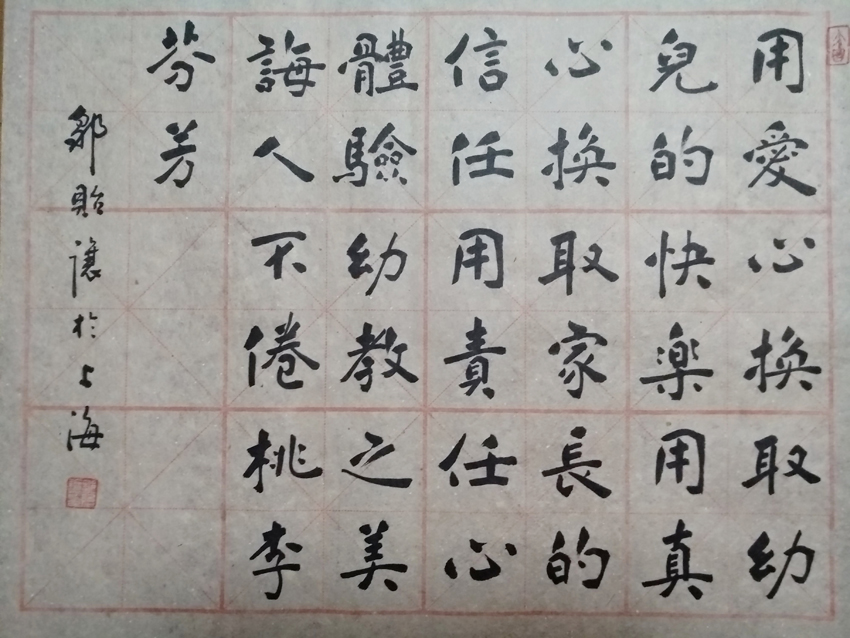 用愛心換取幼
兒的快楽用真
心換取家長的
信任用責任心
體驗幼教之美
誨人不倦桃李
芬芳
鄒貽讓於上海